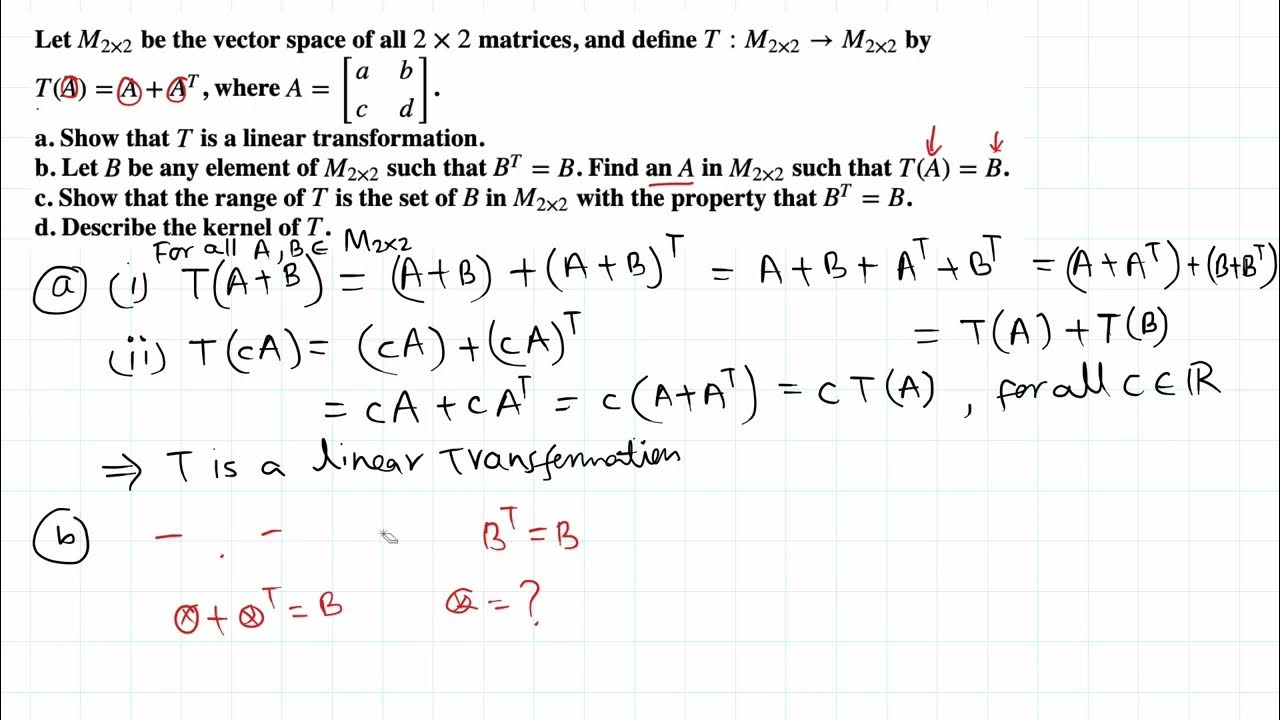 Let M₂ₓ₂ be the vector space of all 2 × 2 matrices, and define T : M₂ₓ₂ → M₂ₓ₂ by
T(A) = A + Aᵀ, where A = [a b; c d].
a. Show that T is a linear transformation.
b. Let B be any element of M₂ₓ₂ such that Bᵀ = B. Find an A in M₂ₓ₂ such that T(A) = B.
c. Show that the range of T is the set of B in M₂ₓ₂ with the property that Bᵀ = B.
d. Describe the kernel of T.
For all A, B ∈ M₂ₓ₂
ⓐ (i) T(A+B) = (A+B) + (A+B)ᵀ = A + B + Aᵀ + Bᵀ = (A+Aᵀ) + (B+Bᵀ)
= T(A) + T(B)
(ii) T(cA) = (cA) + (cA)ᵀ
= cA + cAᵀ = c(A+Aᵀ) = c T(A), for all c ∈ ℝ
⇒ T is a linear Transformation
ⓑ Bᵀ = B
⊗ + ⊗ᵀ = B ⊗ = ?